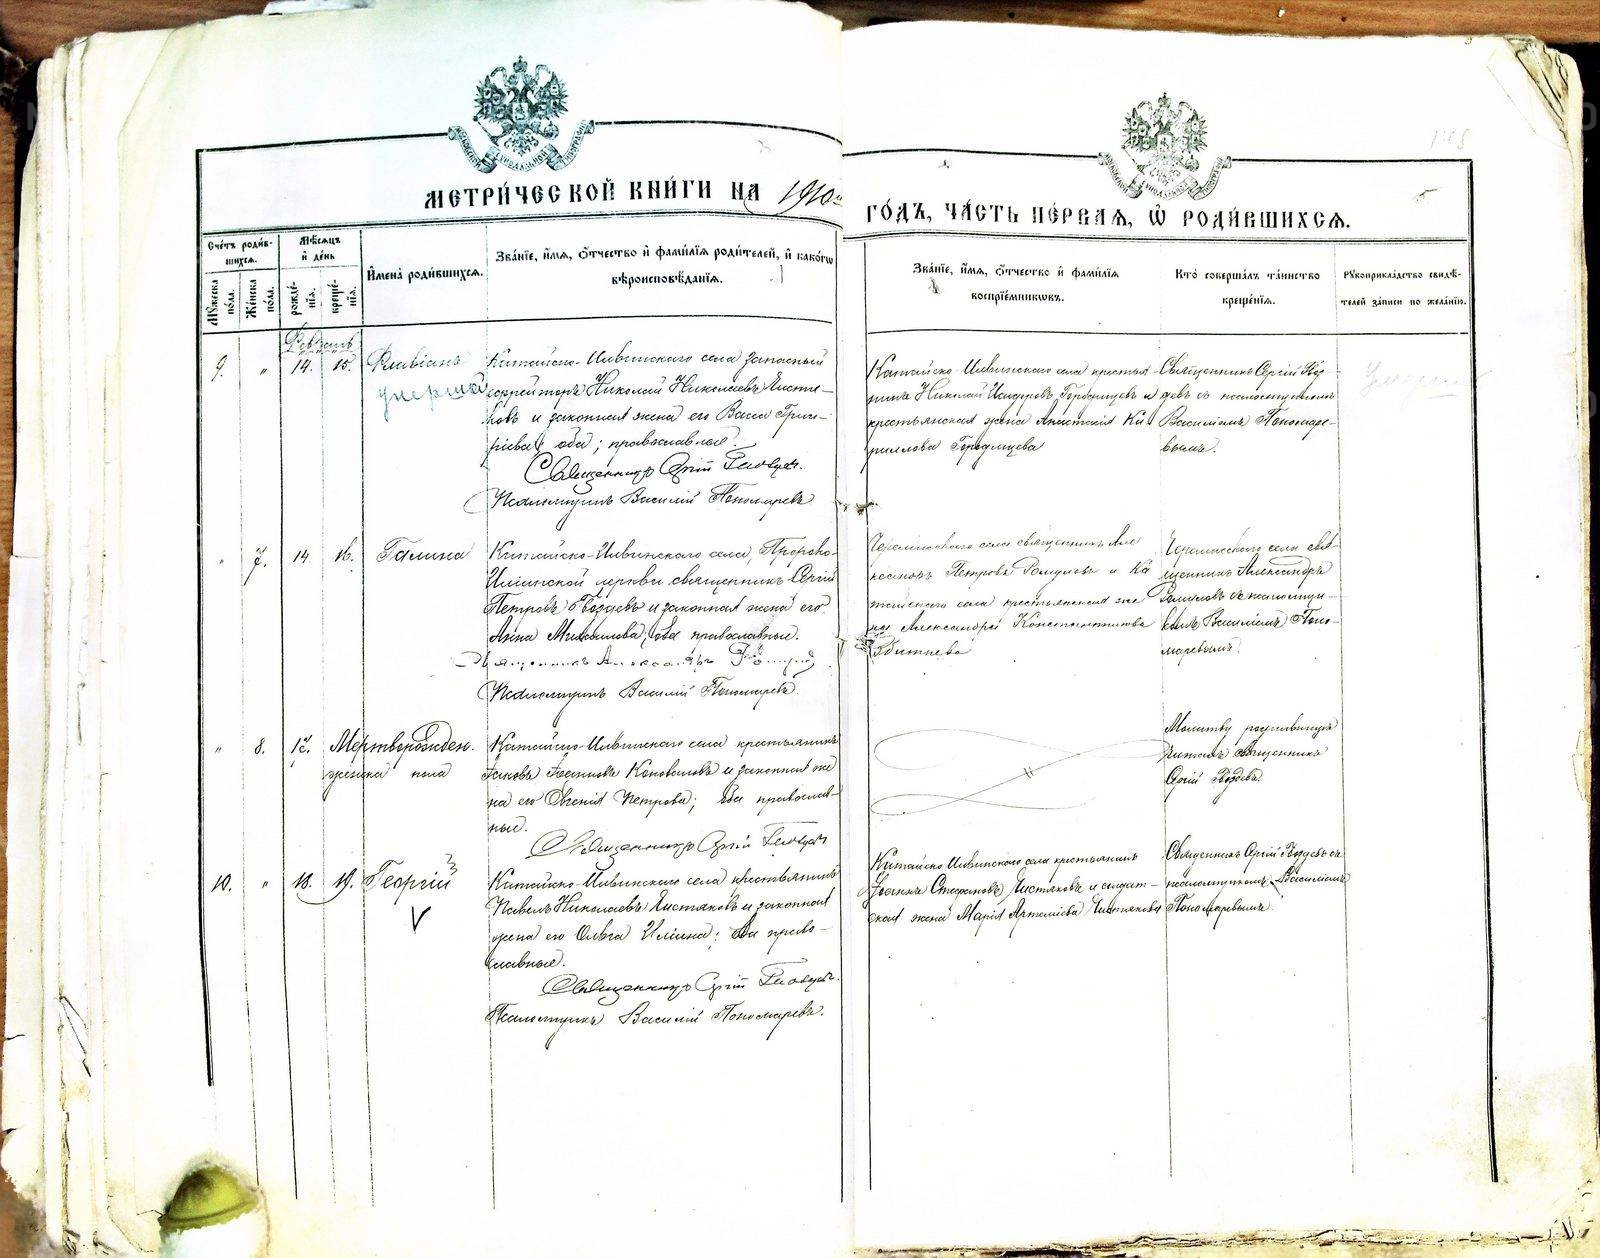 МЕТРИ́ЧЕСКОЙ КНИ́ГИ НА 1910й ГО́ДЪ, ЧА́СТЬ ПЕ́РВАЯ, Ѽ РОДИ́ВШИХСЯ.
148
5
Сче́тъ роди́в-
шихся.
Му́жеска по́ла.
Же́нска по́ла.
Мѣ́сяцъ и де́нь
рожде́-
нїя.
креще́-
нїя.
Имена̀ роди́вшихся.
Зва́нїе, и́мя, ѻ́тчество и фами́лїя роди́телей, и како́гѡ
вѣроисповѣ́данїя.
Зва́нїе, и́мя, ѻ́тчество и фами́лїя
воспрїе́мникѡвъ.
Кто̀ соверша́лъ та́инство
креще́нїя.
Рукоприкла́дство свидѣ́-
телей за́писи по жела́нїю.
Февраль
9. " 14. 15. Флавіанъ
умершій
Китайско-Ильинскаго села запасный
ефрейторъ Николай Николаевъ Чистя-
ковъ и законная жена его Васса Григо-
рiева; оба православные.
Священникъ Сергій Гвоздевъ.
Псаломщикъ Василій Пономаревъ
Николай Исидоровъ Городищевъ и
крестьянская жена Анастасія Ки
риллова Городищева
Священникъ Сергій Гвоз-
девъ съ псаломщикомъ
Василіемъ Пономаре-
вымъ.
" 7. 14. 16. Галина
села, Пророко-
Ильинской церкви священникъ Сергій
Петровъ Гвоздевъ и законная жена его
Анна Михаилова; оба православные.
Священникъ Александръ
Псаломщикъ Василій Пономаревъ.
села священникъ Але
ксандръ Петровъ Ромуловъ и Ки
тайскаго села крестьянская же
на Александра Константинова
села свя-
щенникъ Александръ
Ромуловъ съ псаломщи-
комъ Василіемъ Поно-
маревымъ.
" 8. 17. Мертворожден.
женска пола
села крестьянинъ
Іаковъ Іоанновъ Коноваловъ и законная же
на его Евгенія Петрова; оба православ-
ные.
Священникъ Сергій Гвоздевъ
Молитву
читалъ священникъ
Сергій Гвоздевъ.
10. " 18. 19. Георгій
V
села крестьянинъ
Павелъ Николаевъ Чистяковъ и законная
жена его Ольга Ильина; оба право-
славные.
Священникъ Сергій Гвоздевъ.
Псаломщикъ Василій Пономаревъ.
села крестьянинъ
Іоаннъ Стефановъ Чистяковъ и солдат-
ская жена Марія Артеміева Чистякова
Священникъ Сергій Гвоздевъ съ
псаломщикомъ Василіемъ
Пономаревымъ.